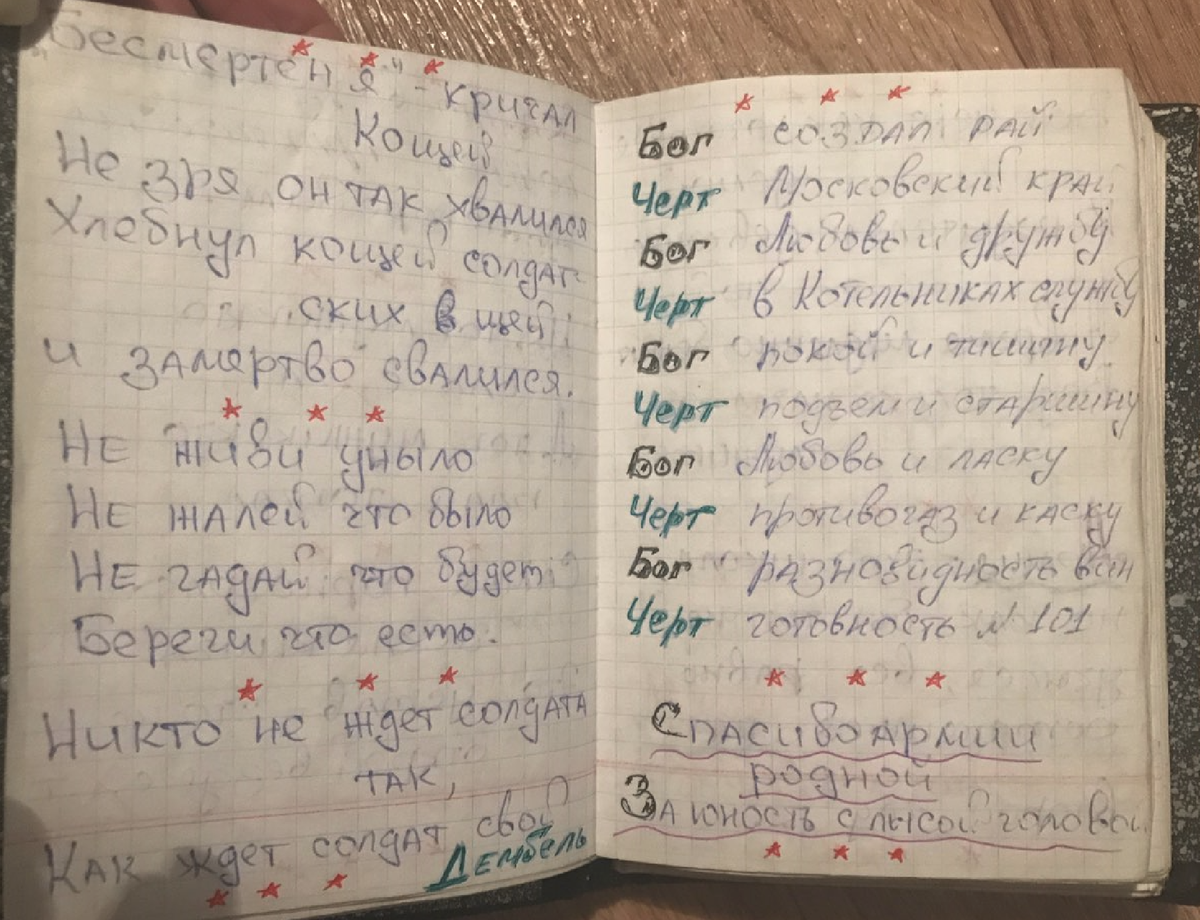 "Бесмертен я" - кричал
Кощей
Не зря он так хвалился
Хлебнул кощей солдат-
ских в щей
и замертво свалился.
Не живи уныло
Не жалей что было
Не гадай что будет
Береги что есть.
Никто не ждет солдата
так,
Как ждет солдат свой
Дембель
Бог создал рай
Черт Московский край
Бог Любовь и дружбу
Черт в Котельниках службу
Бог покой и тишину
Черт подъем и старшину
Бог Любовь и ласку
Черт противогаз и каску
Бог разновидность вин
Черт готовность № 101
Спасибо армии
родной
За юность с лысой головой